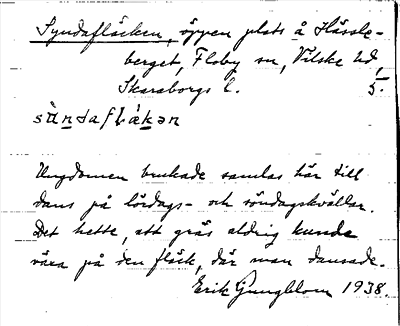 Syndafläcken, öppen plats å Hässle-
berget, Floby sn, Vilske hd,
Skaraborgs l. 5.
sùndaflàkən
Ungdomen brukade samlas här till
dans på lördags- och söndagskvällar.
Det hette, att gräs aldrig kunde
växa på den fläck, där man dansade.
Erik Ljungblom 1938.